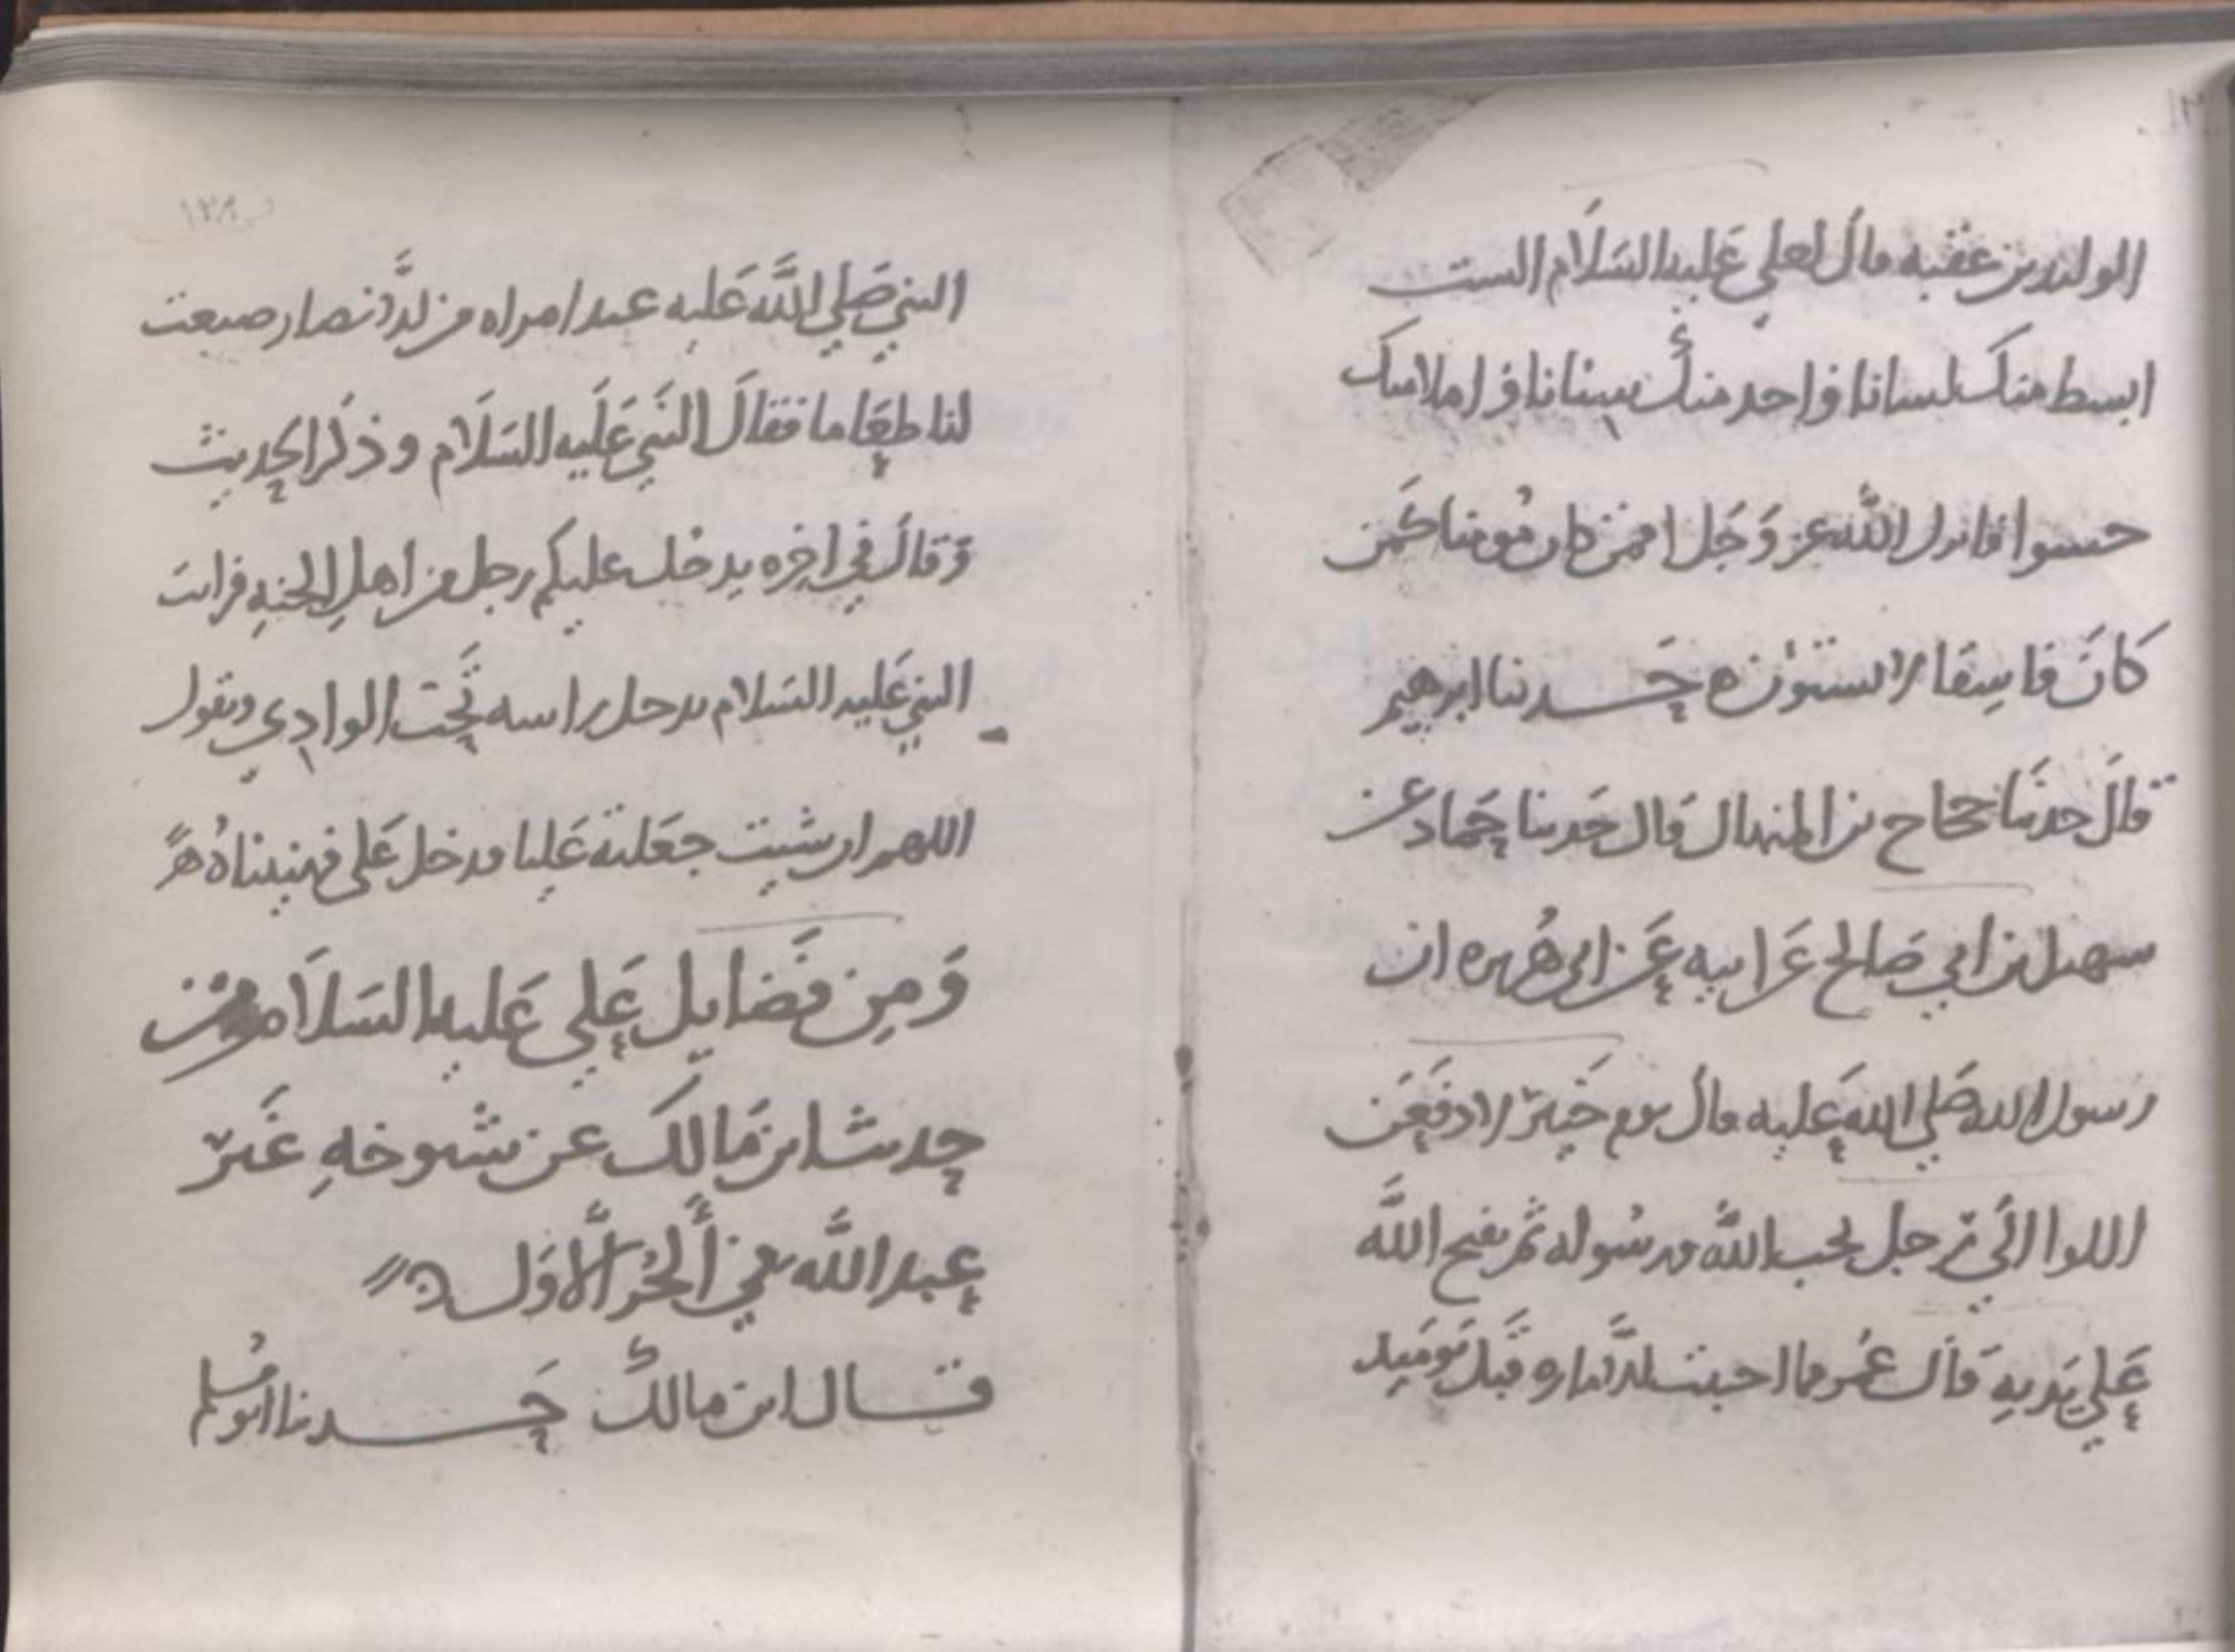 الوليد بن عقبه قال لعلي عليه السلام الست
ابسط منك لسانا واحد منك سنانا واملا منك
حسوا فانزل الله عز وجل افمن كان مومنا كمن
كان فاسقا لا يستوون ه حدثنا ابرهيم
قال حدثنا حجاج بن المنهال قال حدثنا حماد عن
سهيل بن ابي صالح عن ابيه عن ابي هريره ان
رسول الله صلي الله عليه قال يوم خيبر لادفعن
اللوا الي رجل يحب الله ورسوله ثم يفتح الله
علي يديه قال عمر فما احببت الاماره قبل يوميد
النبي صلي الله عليه عند امراه من الانصار صنعت
لنا طعاما فقال النبي عليه السلام وذكر الحديث
وقال في اخره يدخل عليكم رجل من اهل الجنه فرايت
النبي عليه السلام يدخل راسه تحت الوادي ويقول
اللهم ان شيت جعلته عليا فدخل علي فهنيناه ه
ومن فضايل علي عليه السلام من
حديث ابن مالك عن شيوخه غير
عبد الله الاول
قال ابن مالك حدثنا ابو مسلم